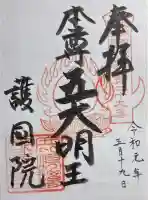 奉拝
令和元年
五月十九日
本尊
五大明王
護国院